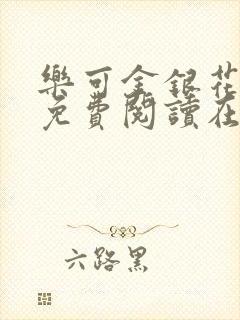 樂可金銀花
免費閱讀在
六路黑